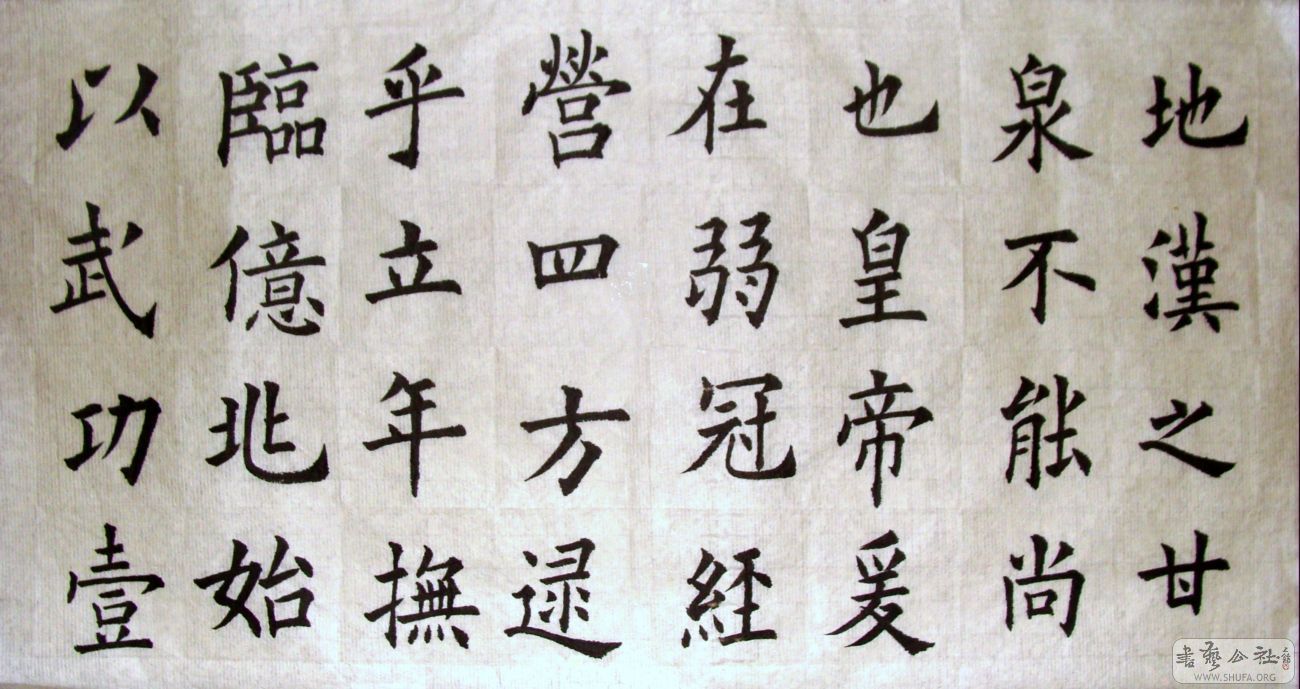 地漢之甘
泉不能尚
也皇帝爰
在弱冠經
營四方逯
乎立年撫
臨億兆始
以武功壹
書藝公社
WWW.SHUFA.ORG